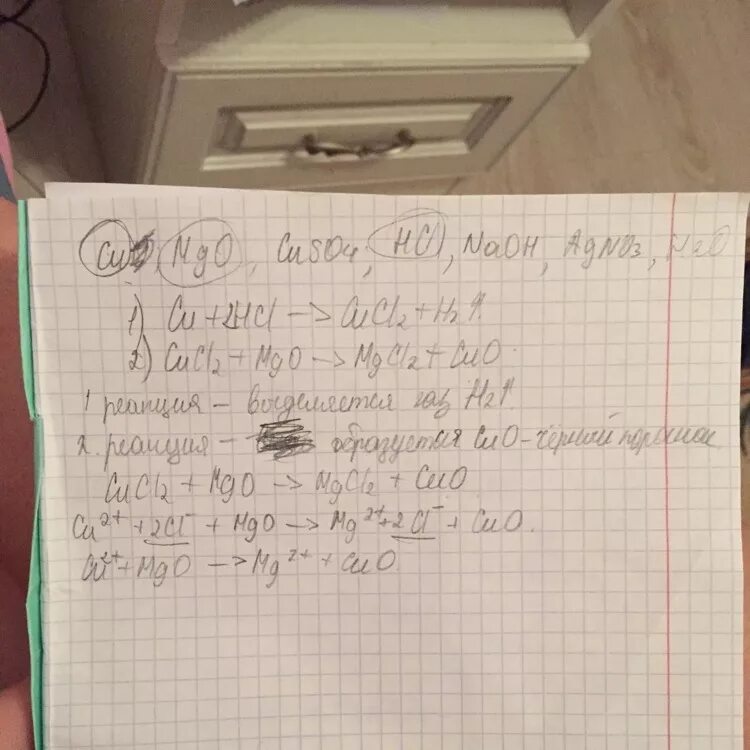 Cu, MgO, CuSO4, HCl, NaOH, AgNO3, H2O
1) Cu + 2HCl -> CuCl2 + H2↑.
2) CuCl2 + MgO -> MgCl2 + CuO.
1 реакция - выделяется газ H2↑.
2. реакция - образуется CuO - чёрный порошок
CuCl2 + MgO -> MgCl2 + CuO
Cu2+ + 2Cl- + MgO -> Mg2+ + 2Cl- + CuO.
Cu2+ + MgO -> Mg2+ + CuO